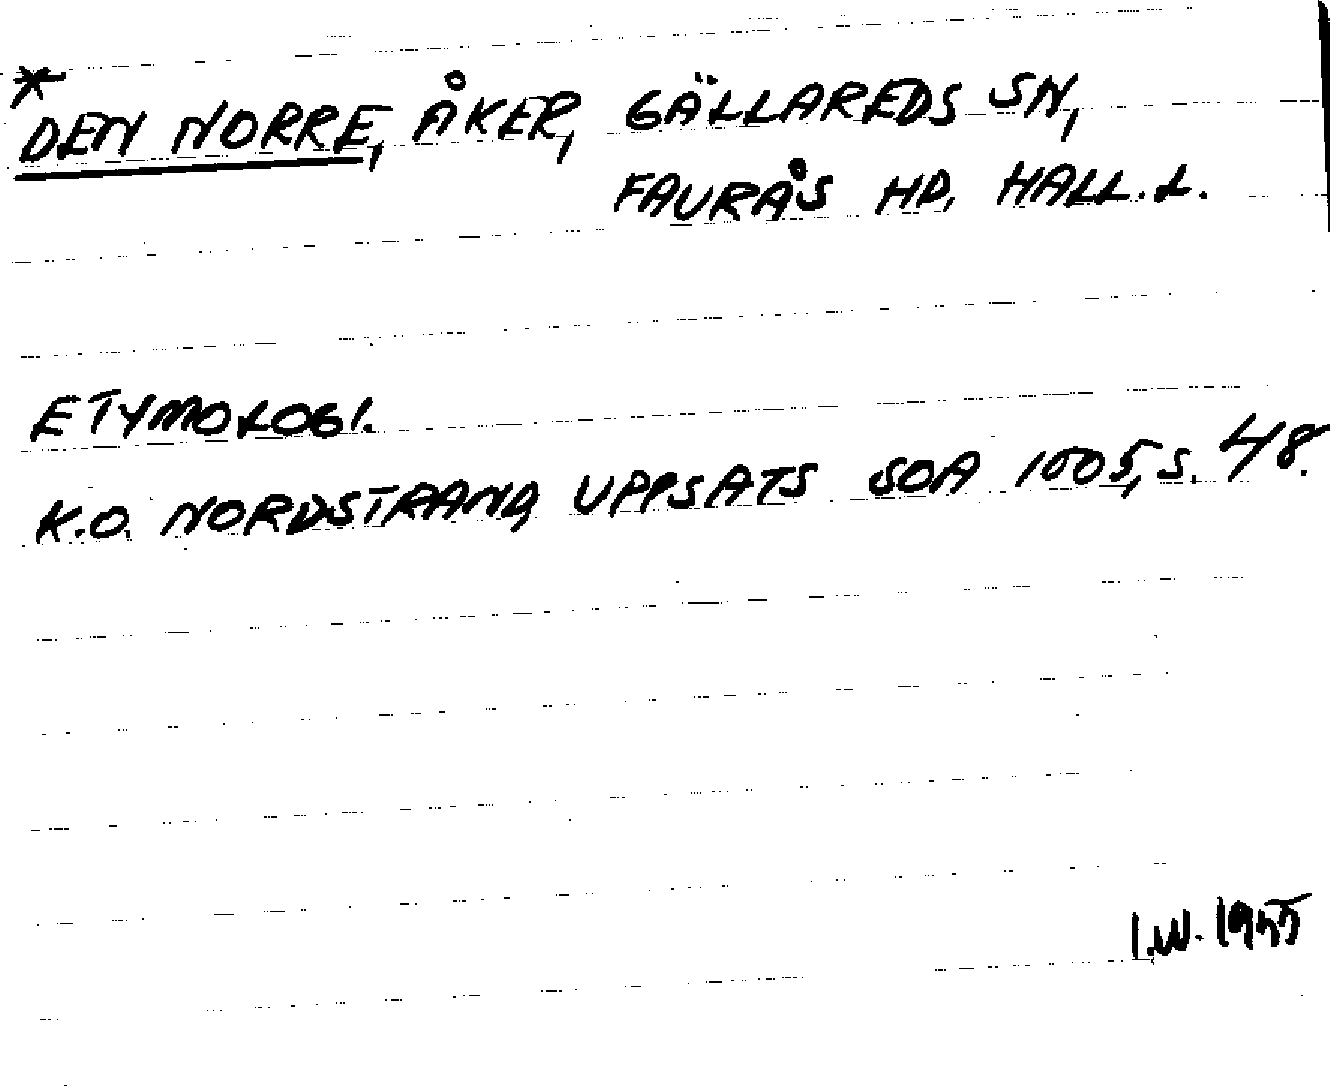 *DEN NORRE, ÅKER, GÄLLAREDS SN,
FAURÅS HD, HALL.L.
ETYMOLOGI.
K.O. NORDSTRAND, UPPSATS SOA 1005, S. 48.
I.W. 1955